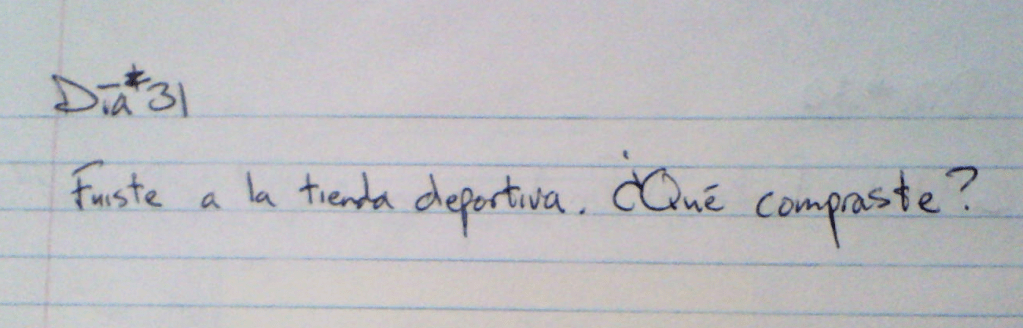 Día #31
Fuiste a la tienda deportiva. ¿Qué compraste?